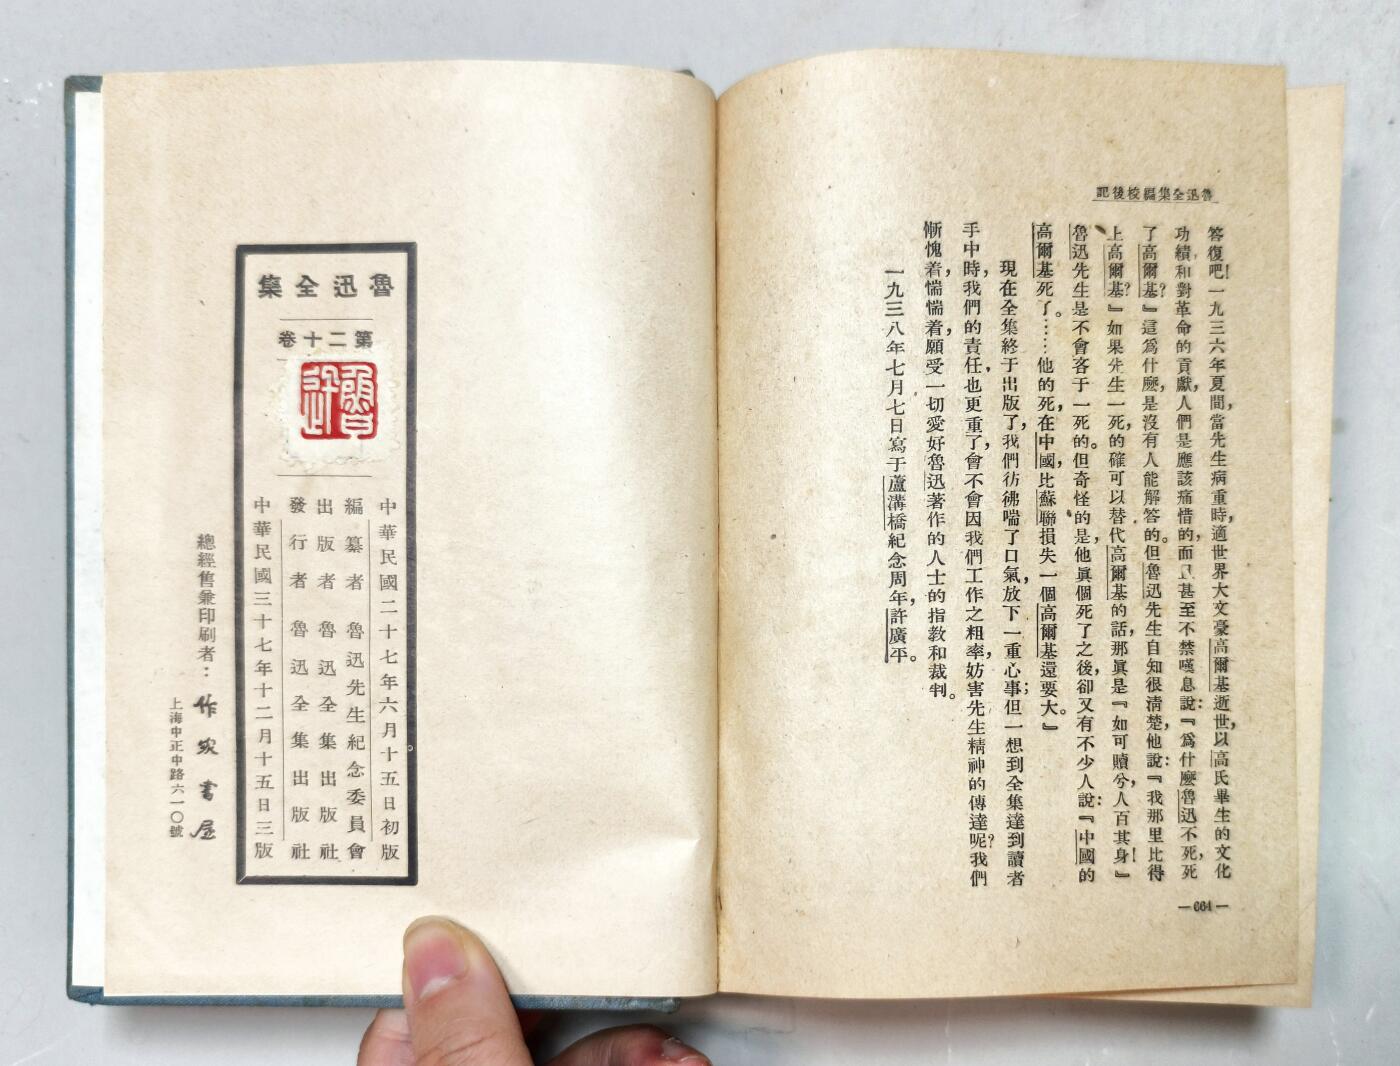 魯迅全集編校後記
答復吧!一九三六年夏間,當先生病重時,適世界大文豪高爾基逝世,以高氏畢生的文化
功績和對革命的貢獻,人們是應該痛惜的,而且甚至不禁嘆息說:『爲什麼魯迅不死,死
了高爾基?』這爲什麼,是沒有人能解答的。但魯迅先生自知很清楚,他說:『我那里比得
上高爾基?』如果先生一死,的確可以替代高爾基的話,那眞是『如可贖兮,人百其身!』
魯迅先生是不會吝于一死的。但奇怪的是,他眞個死了之後,卻又有不少人說:『中國的
高爾基死了。……他的死,在中國,比蘇聯損失一個高爾基還要大。』
現在全集終于出版了,我們彷彿喘了口氣,放下一重心事;但一想到全集達到讀者
手中時,我們的責任,也更重了,會不會因我們工作之粗率,妨害先生精神的傳達呢?我們
慚愧着,惴惴着,願受一切愛好魯迅著作的人士的指教和裁判。
一九三八年七月七日寫于蘆溝橋紀念周年,許廣平。
—664—
魯迅全集
第二十卷
魯迅
中華民國二十七年六月十五日初版
編纂者 魯迅先生紀念委員會
出版者 魯迅全集出版社
發行者 魯迅全集出版社
中華民國三十七年十二月十五日三版
總經售兼印刷者:作家書屋
上海中正中路六一〇號